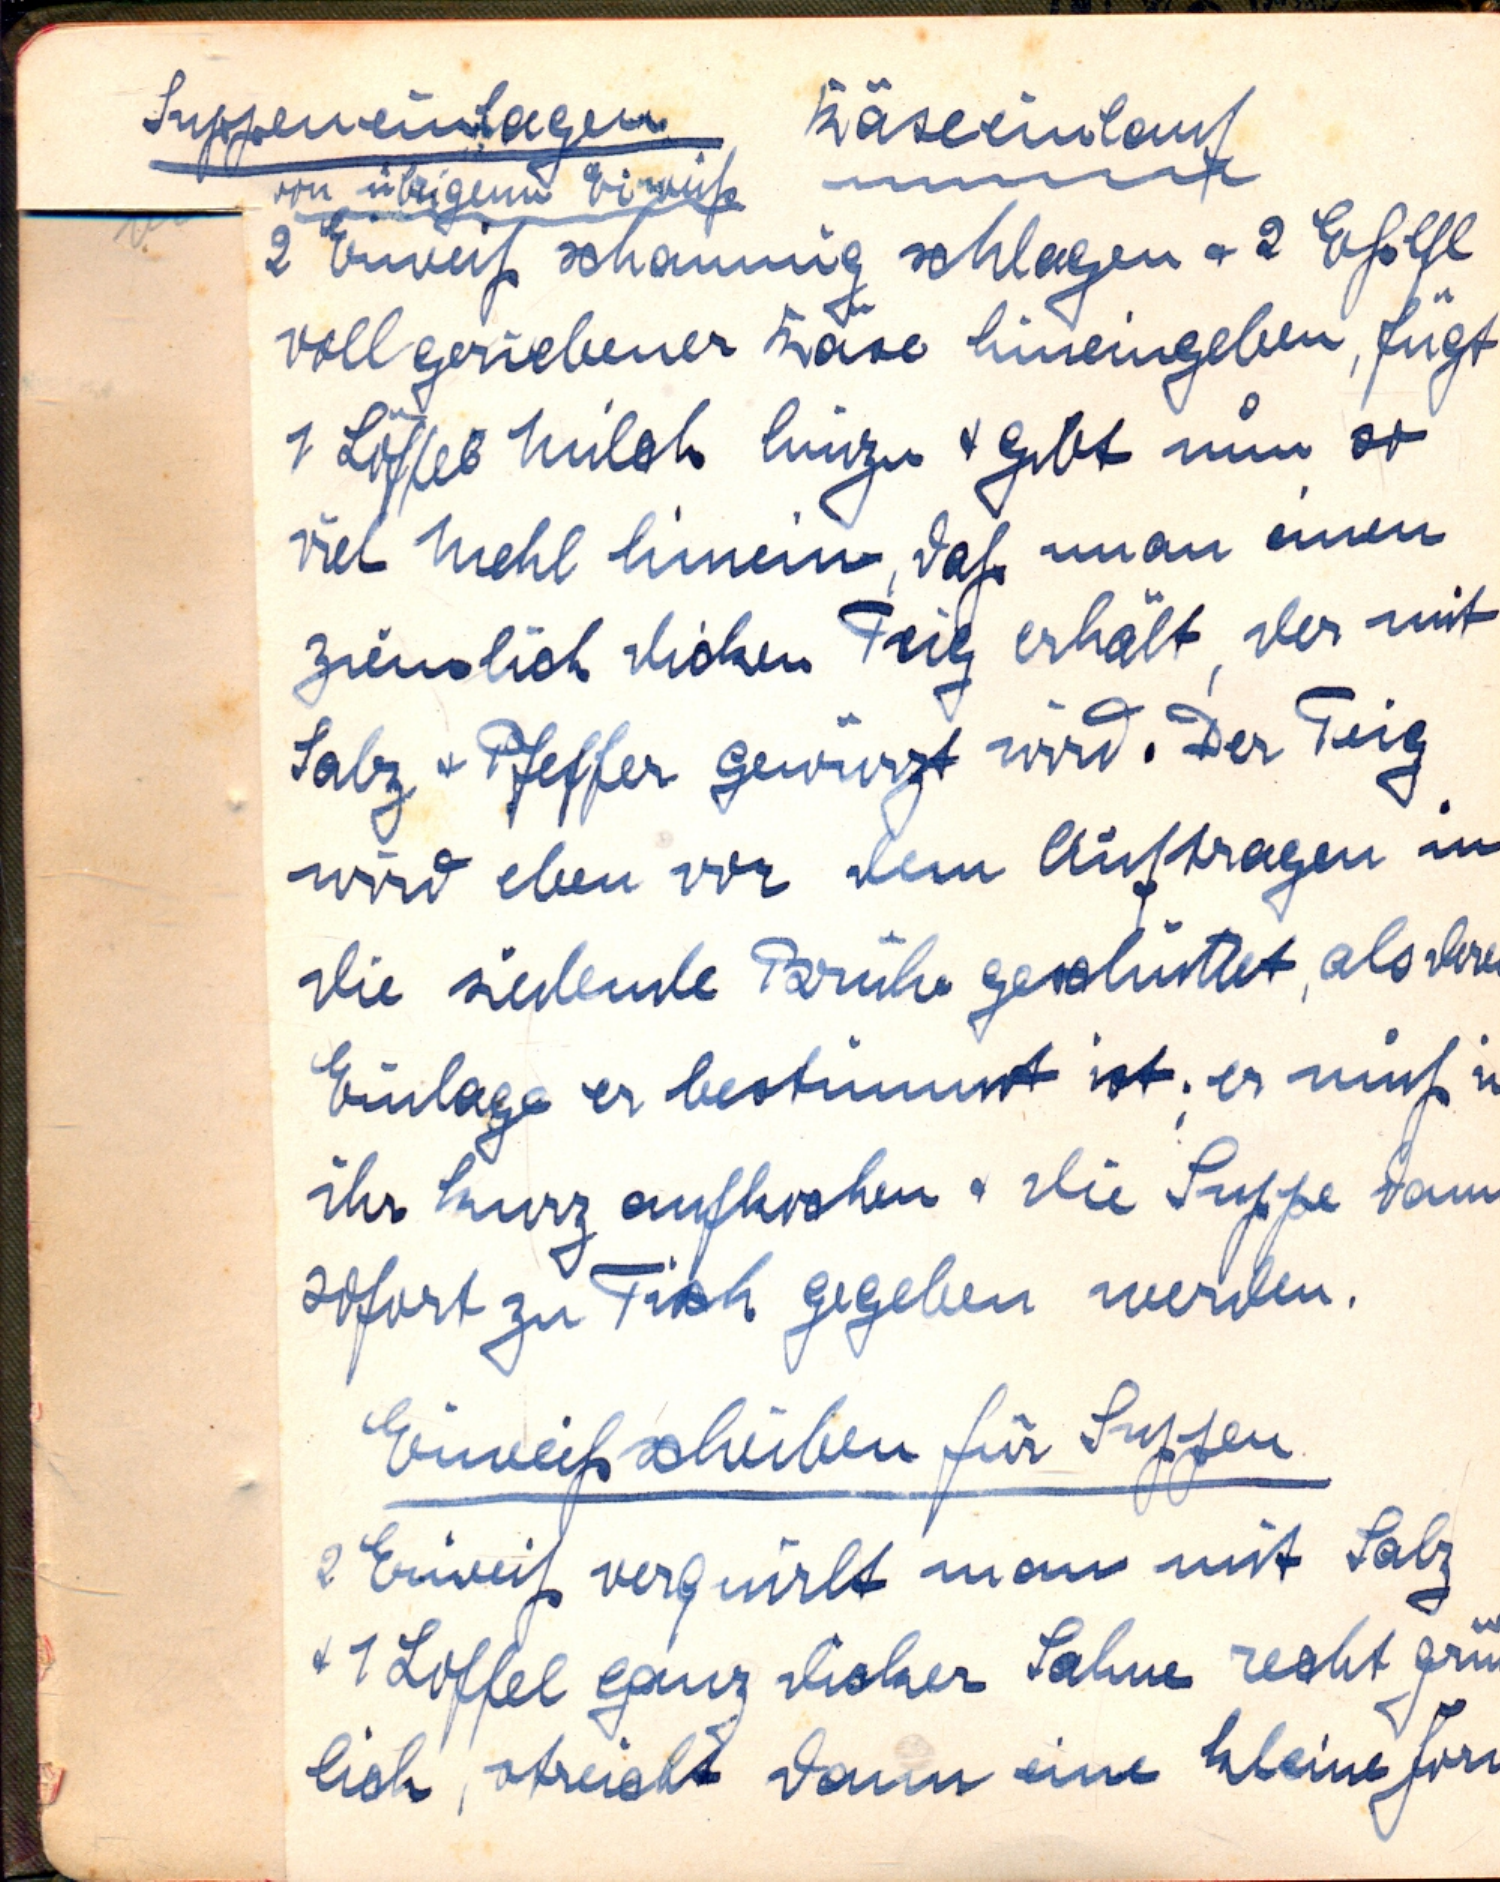 Suppeneinlagen Käseeinlauf
von übrigem Eiweiß
2 Eiweiß schaumig schlagen & 2 Eßlfl
voll geriebener Käse hineingeben, fügt
1 Löffel Milch hinzu & gibt nun so
viel Mehl hinein, daß man einen
ziemlich dicken Teig erhält, der mit
Salz & Pfeffer gewürzt wird. Der Teig
wird eben vor dem Auftragen in
die siedende Brühe geschüttet, als dere
Einlage er bestimmt ist; er muß i
ihr kurz aufkochen & die Suppe dann
sofort zu Tisch gegeben werden.
Eiweißscheiben für Suppen
2 Eiweiß verquirlt man mit Salz
& 1 Löffel ganz dicker Sahne recht grün
lich, streicht dann eine kleine Form